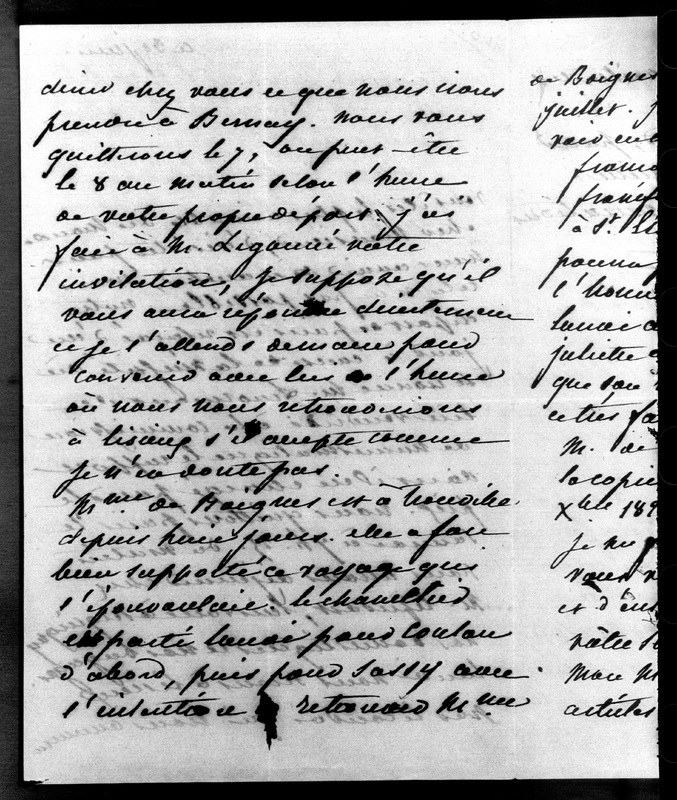 diner chez vous ce que nous irons
prendre à Bernay. nous vous
quitterons le 7, ou peut-être
le 8 au matin selon l'heure
de votre propre départ. j'ai
fait à M. votre
invitation, je suppose qu'il
vous aura répondu directement
et je l'attends demain pour
convenir avec lui de l'heure
où nous nous retrouverions
à lisieux s'il accepte comme
je n'en doute pas.
Mme de Boignes est à trouville
depuis huit jours. elle a fort
bien supporté ce voyage qui
l'épouvantait. le chancelier
est parti lundi pour
d'abord, puis pour Sassy avec
l'intention retrouver Mme
de Boignes
juillet. j
à St.
pourra
l'
lundi
juliette
que son
et très
M. de
la copie
Xbre 18
je ne
vous
et d'
vôtre
Mon
articles